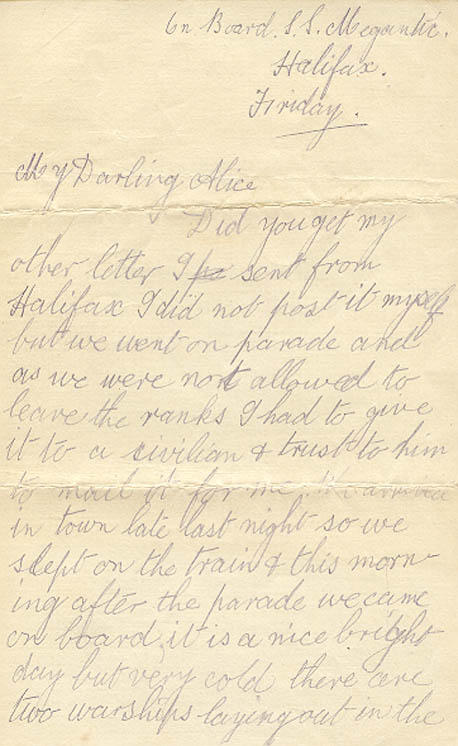 On Board. S.S. Megantic.
Halifax.
Friday.
My Darling Alice
Did you get my
other letter I sent from
Halifax I did not post it myself
but we went on parade and
as we were not allowed to
leave the ranks I had to give
it to a civilian & trust to him
to mail it for me. We arrived
in town late last night so we
slept on the train & this morn-
ing after the parade we came
on board it is a nice bright
day but very cold there are
two warships laying out in the